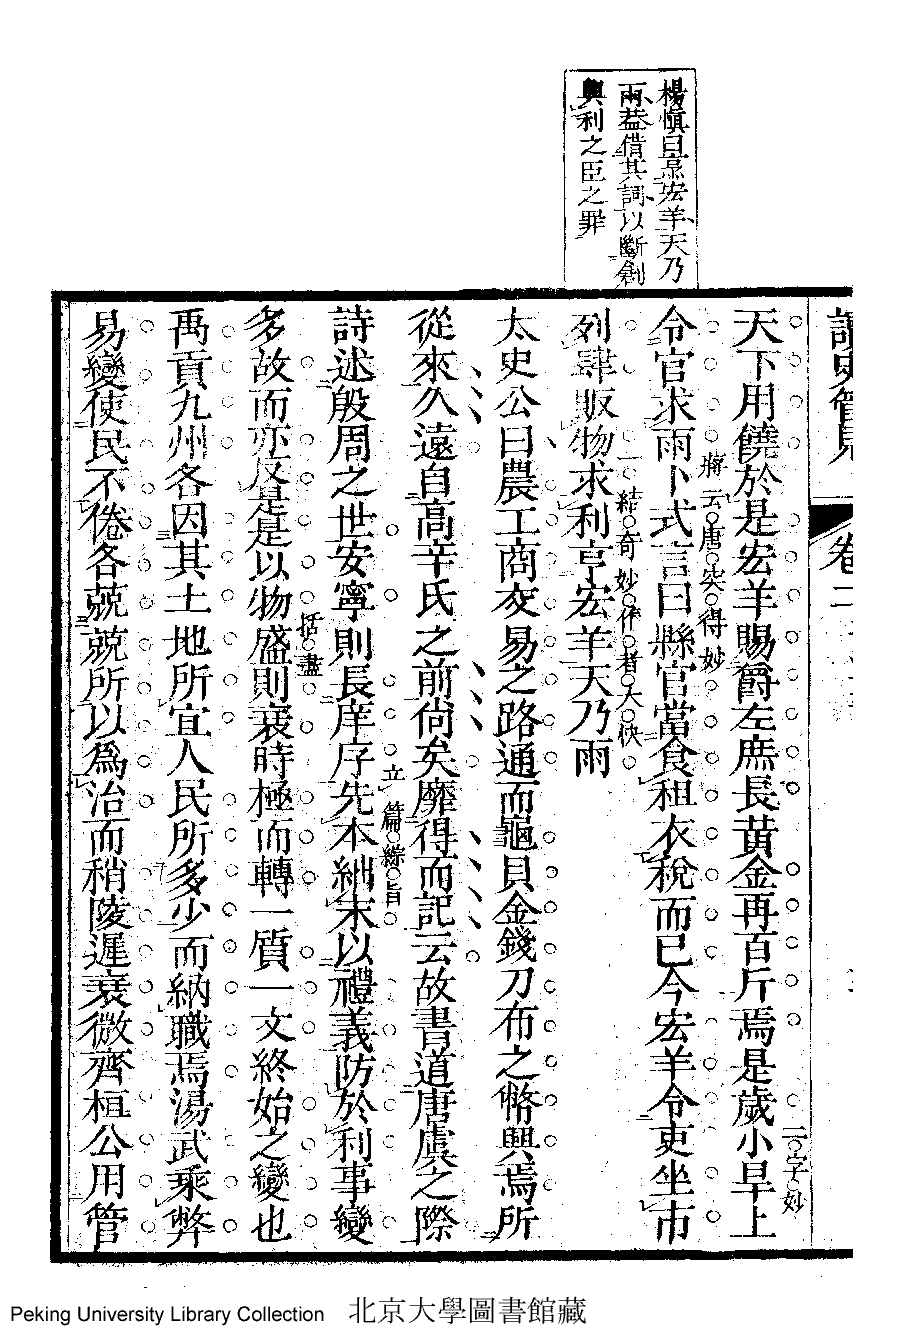 楊慎曰烹宏羊天乃
雨蓋借其詞以斷創
興利之臣之罪
卷二
天下用饒於是宏羊賜爵左庶長黃金再百斤焉是歲小旱上
二字妙
令官求雨卜式言曰縣官當食租衣稅而已今宏羊令吏坐市
蔣云唐突得妙
列肆販物求利亨宏羊天乃雨
一結奇妙作者大快
太史公曰農工商交易之路通而龜貝金錢刀布之幣興焉所
從來久遠自高辛氏之前尚矣靡得而記云故書道唐虞之際
詩述殷周之世安寧則長庠序先本絀末以禮義防於利事變
立篇綜旨
多故而亦反是是以物盛則衰時極而轉一質一文終始之變也
括盡
禹貢九州各因其土地所宜人民所多少而納職焉湯武乘弊
易變使民不倦各兢兢所以爲治而稍陵遲衰微齊桓公用管
Peking University Library Collection 北京大學圖書館藏